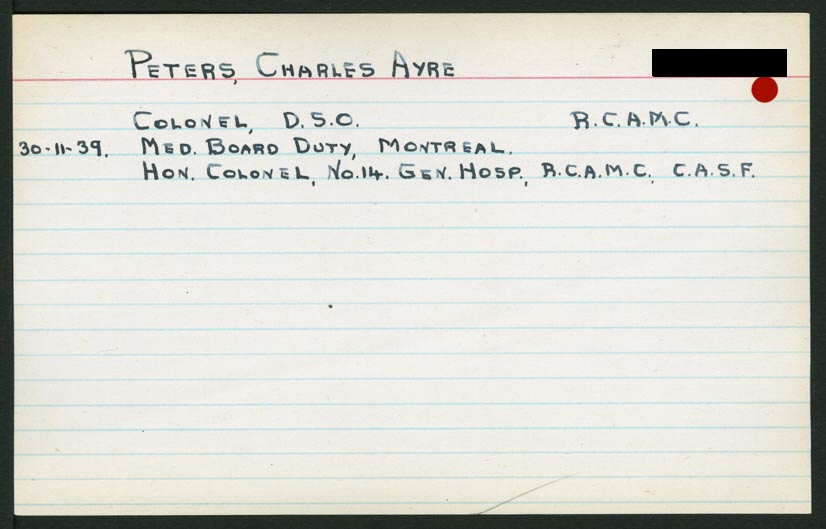 PETERS, CHARLES AYRE
COLONEL, D.S.O. R.C.A.M.C.
30-11-39. MED. BOARD DUTY, MONTREAL.
HON. COLONEL, No.14. GEN. HOSP., R.C.A.M.C. C.A.S.F.